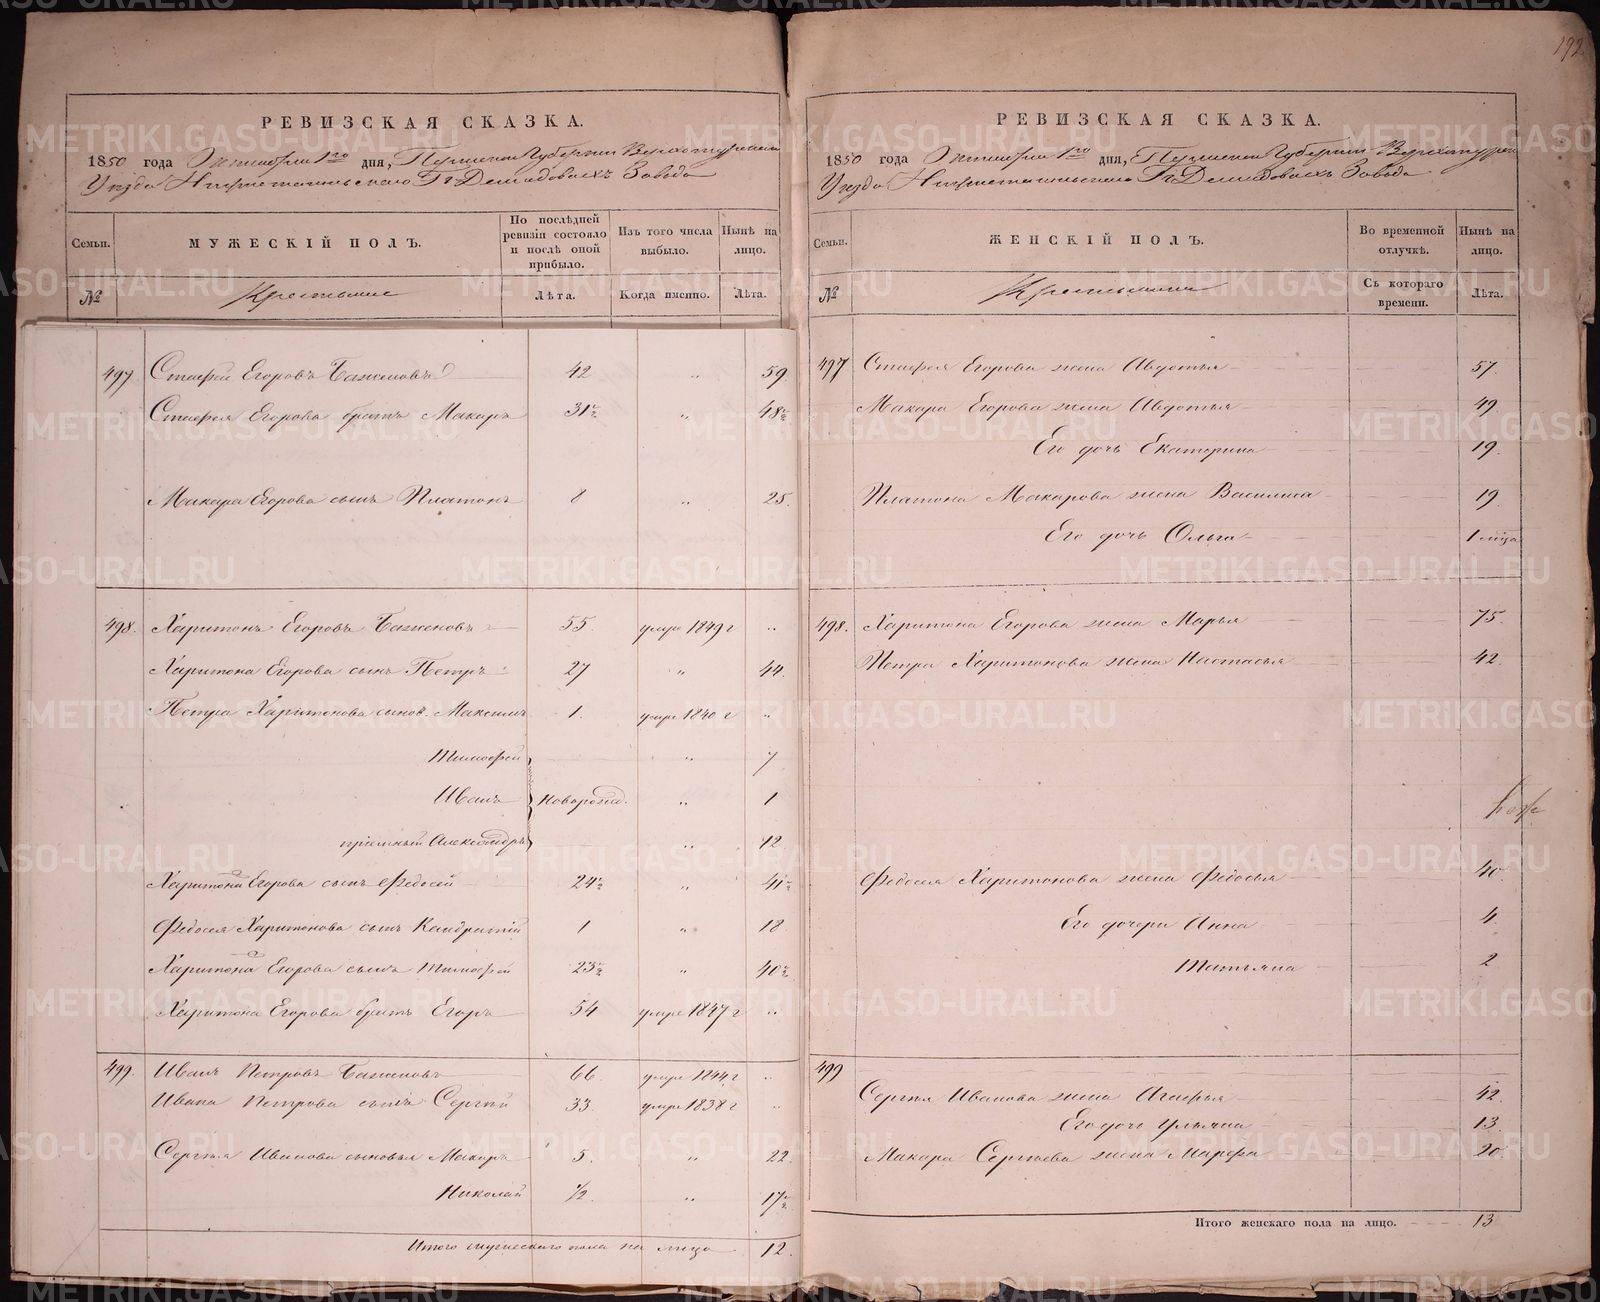 192
РЕВИЗСКАЯ СКАЗКА.
1850 года Октября 1го дня, Пермской Губернии Верхотурскаго
Уѣзда Нижнетагильскаго Гг Демидовыхъ Завода
Семьи. МУЖЕСКІЙ ПОЛЪ. По послѣдней ревизіи состояло и послѣ оной прибыло. Изъ того числа выбыло. Нынѣ на лицо.
№ Крестьяне Лѣта. Когда именно. Лѣта.
497 Стафей Егоровъ Баженовъ 42 " 59.
Стафея Егорова братъ Макаръ 31½ " 48½
Макара Егорова сынъ Платонъ 8 " 25.
498. Харитонъ Егоровъ Баженовъ 55. умре 1849 г "
Харитона Егорова сынъ Петръ 27 " 44.
Петра Харитонова сынов. Максимъ 1. умре 1840 г "
Тимофей " 7
Иванъ новорожд. " 1
пріемный Александръ " 12
Харитона Егорова сынъ Федосей 24½ " 41½
Федосея Харитонова сынъ Кондратій 1 " 18
Харитона Егорова сынъ Тимофей 23½ " 40½
Харитона Егорова братъ Егоръ 54 умре 1847 г "
499. Иванъ Петровъ Баженовъ 66. умре 1844 г "
Ивана Петрова сынъ Сергѣй 33. умре 1838 г "
Сергѣя Иванова сыновья Макаръ 5. " 22.
Николай ½. " 17½
Итого мужескаго пола на лицо 12.
РЕВИЗСКАЯ СКАЗКА.
1850 года Октября 1го дня, Пермской Губернии Верхотурскаго
Уѣзда Нижнетагильскаго Гг Демидовыхъ Завода
Семьи. ЖЕНСКІЙ ПОЛЪ. Во временной отлучкѣ. Нынѣ на лицо.
№ Крестьянки Съ котораго времени. Лѣта.
497 Стафея Егорова жена Авдотья 57.
Макара Егорова жена Авдотья 49
Его дочь Екатерина 19.
Платона Макарова жена Василиса 19
Его дочь Ольга 1 мѣсяц
498. Харитона Егорова жена Марья 75.
Петра Харитонова жена Настасья 42.
Федосея Харитонова жена Федосья 40.
Его дочери Анна 4.
Татьяна 2
499
Сергѣя Иванова жена Агафья 42.
Его дочь Ульяна 13.
Макара Сергѣева жена Марфа 20.
Итого женскаго пола на лицо. 13
METRIKI.GASO-URAL.RU